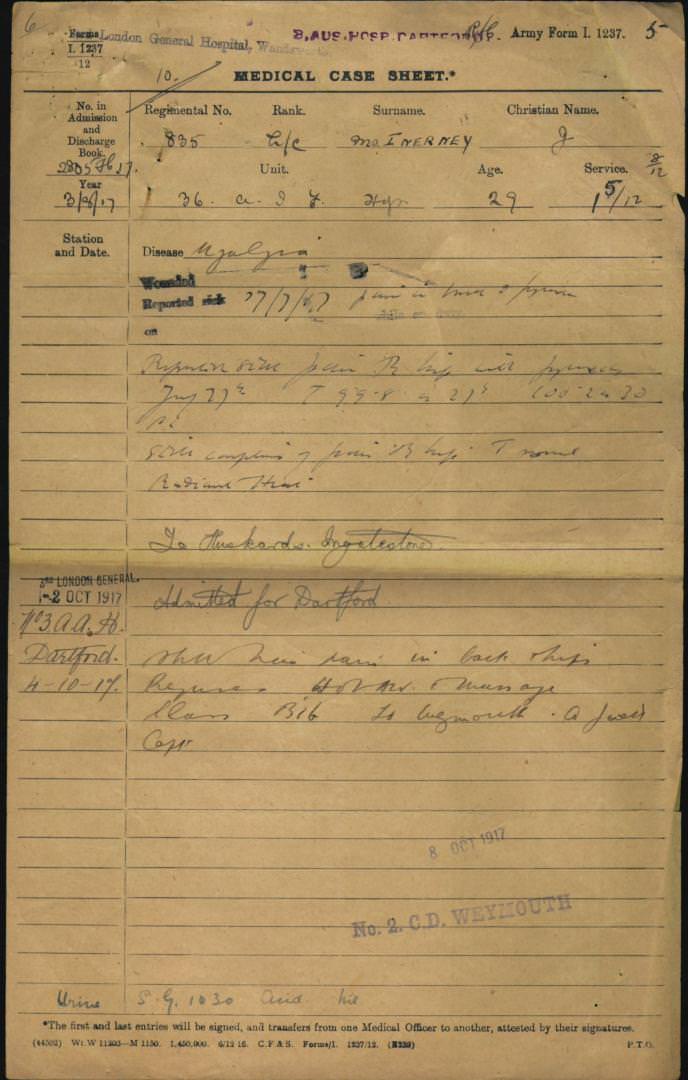 6
Forms
I. 1237
12
London General Hospital, Wandsworth.
3. AUS. HOSP. DARTFORD.
Army Form I. 1237.
5
10.
MEDICAL CASE SHEET.*
No. in Admission and Discharge Book.
Year
3/8/17
Regimental No. Rank. Surname. Christian Name.
835 L/c McINERNEY J
Unit. Age. Service.
36. A. I. F. 29 1 5/12
8/12
Station and Date.
Disease Myalgia
Wounded
Reported sick
on
27/7/17 pain in back &
Reported sick pain R hip with pyrexia
July 27th T 99.8 on 27th 100.2 on 30
Still complains of pain R hip T normal
Radiant Heat
To Huskards. Ingatestone.
3RD LONDON GENERAL.
1-2 OCT 1917
Admitted for Dartford
No 3. A. A. H.
Dartford.
4-10-17.
Still has pain in back & hips
& Massage
Class B1b To Weymouth.
Capt
8 OCT 1917
No. 2. C.D. WEYMOUTH
Urine S.G. 1030 Acid Nil
*The first and last entries will be signed, and transfers from one Medical Officer to another, attested by their signatures.
(44502) Wt. W 11203—M 1150. 1,450,000. 6/12 16. C. F. & S. Forms/I. 1237/12. (E339) P.T.O.